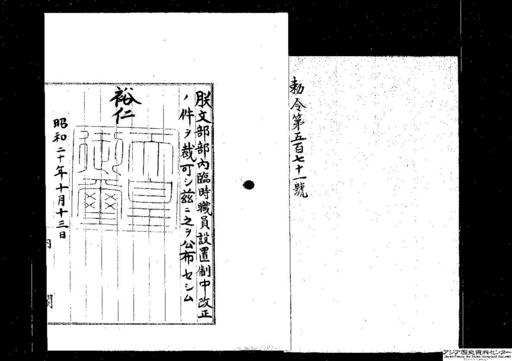 勅令第五百七十一號
朕文部部內臨時職員設置制中改正
ノ件ヲ裁可シ茲ニ之ヲ公布セシム
裕仁
昭和二十年十月十三日
內閣
アジア歴史資料センター